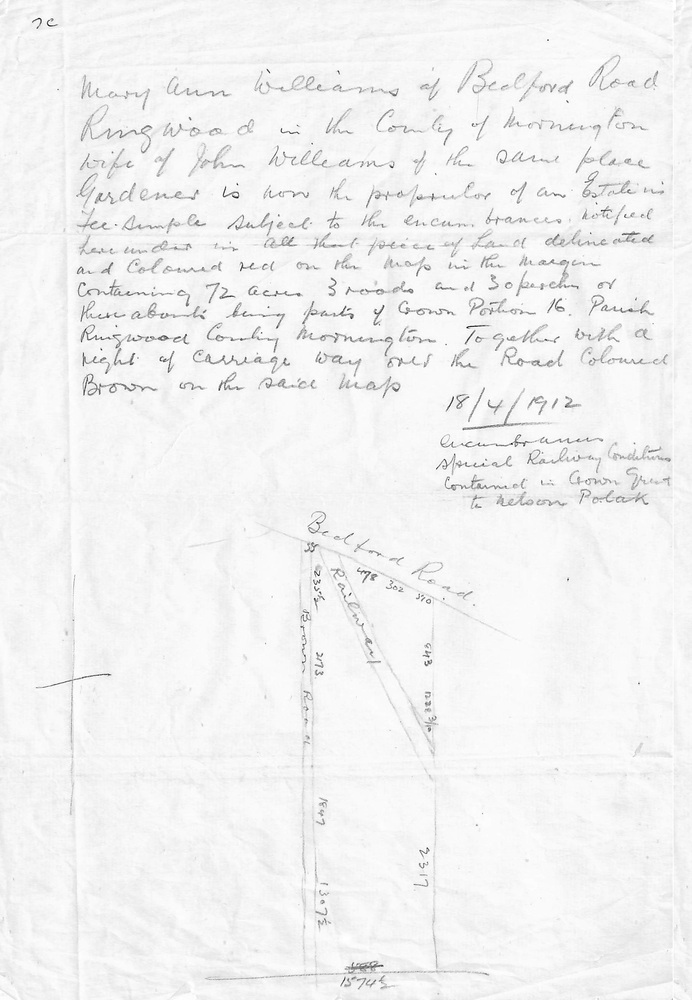 Mary Ann Williams of Bedford Road
Ringwood in the County of Mornington
wife of John Williams of the same place
Gardener is now the proprietor of an Estate in
Fee-simple subject to the encumbrances notified
hereunder in all that piece of Land delineated
and Coloured red on the Map in the Margin
Containing 72 acres 3 roods and 30 perches or
thereabouts being parts of Crown Portion 16. Parish
Ringwood County Mornington. Together with a
right of Carriage way over the Road Coloured
Brown on the said Map
18/4/1912
encumbrances
special Railway Conditions
Contained in Crown Grant
to Nelson Polak
Bedford Road.
Railway
Brown Road
478
302
235½
2173
643
1847
1307½
2317
1574½